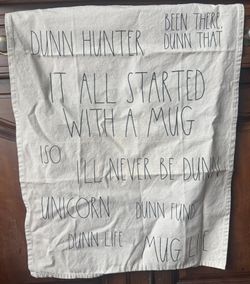 BEEN THERE,
DUNN HUNTER
DUNN THAT
IT ALL STARTED
WITH A MUG
ISO
I'LL NEVER BE DUNN
UNICORN
DUNN FUND
DUNN LIFE
MUG LIFE